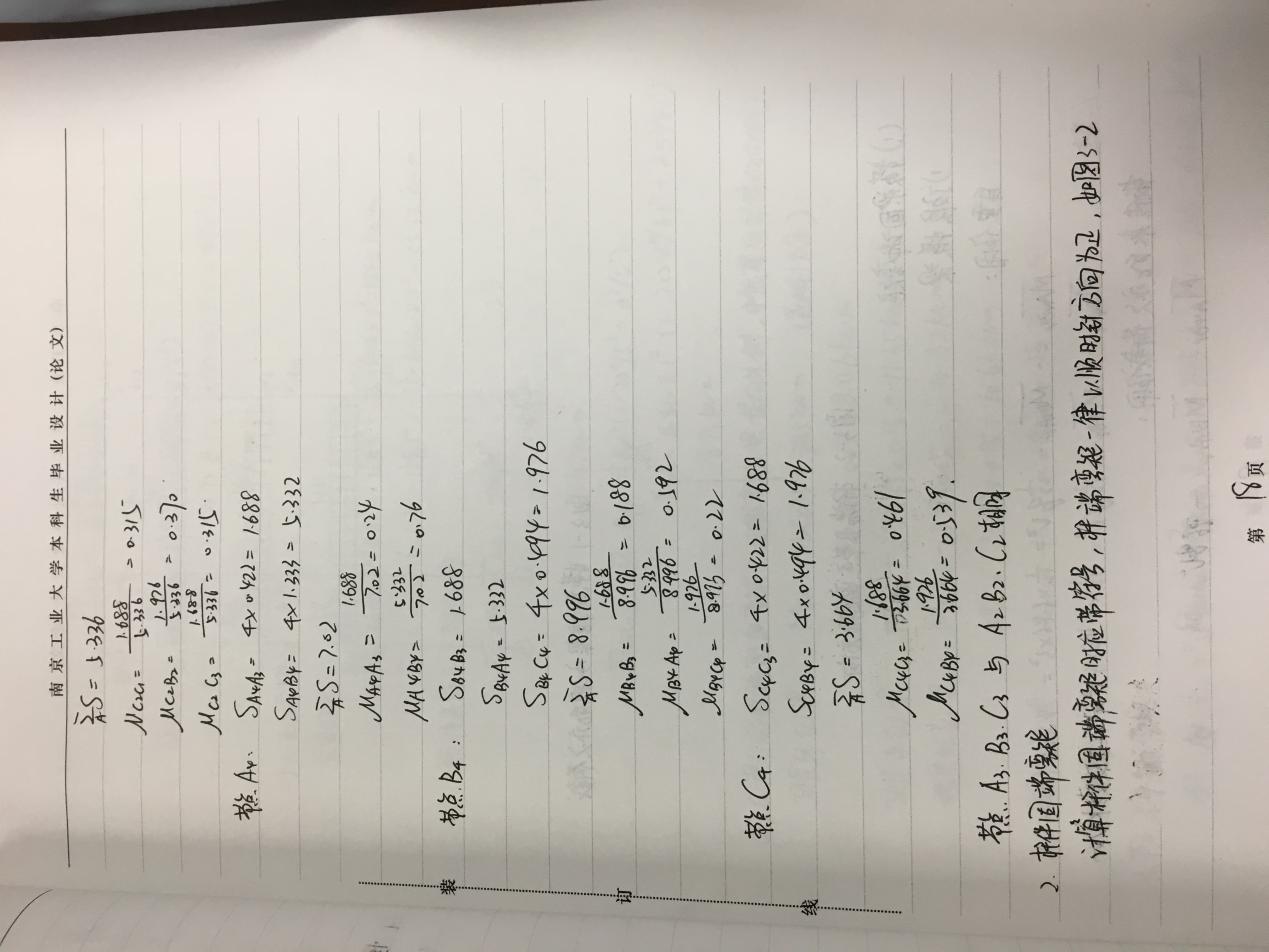 南京工业大学本科生毕业设计(论文)
∑_A S = 5.336
μC2C1 = 1.688/5.336 = 0.315
μC2B2 = 1.976/5.336 = 0.370
μC2C3 = 1.688/5.336 = 0.315
节点A4、 SA4A3 = 4×0.422 = 1.688
SA4B4 = 4×1.333 = 5.332
∑_A S = 7.02
μA4A3 = 1.688/7.02 = 0.24
μA4B4 = 5.332/7.02 = 0.76
节点B4: SB4B3 = 1.688
SB4A4 = 5.332
SB4C4 = 4×0.494 = 1.976
∑_A S = 8.996
μB4B3 = 1.688/8.996 = 0.188
μB4A4 = 5.332/8.996 = 0.592
μB4C4 = 1.976/8.975 = 0.22
节点C4: SC4C3 = 4×0.422 = 1.688
SC4B4 = 4×0.494 = 1.976
∑_A S = 3.664
μC4C3 = 1.688/3.664 = 0.461
μC4B4 = 1.976/3.664 = 0.539.
节点A3.B3.C3与A2.B2.C2相同
2. 杆件固端弯矩
计算杆件固端弯矩时应带符号,杆端弯矩一律以顺时针方向为正,如图3-2
装
订
线
第 18 页